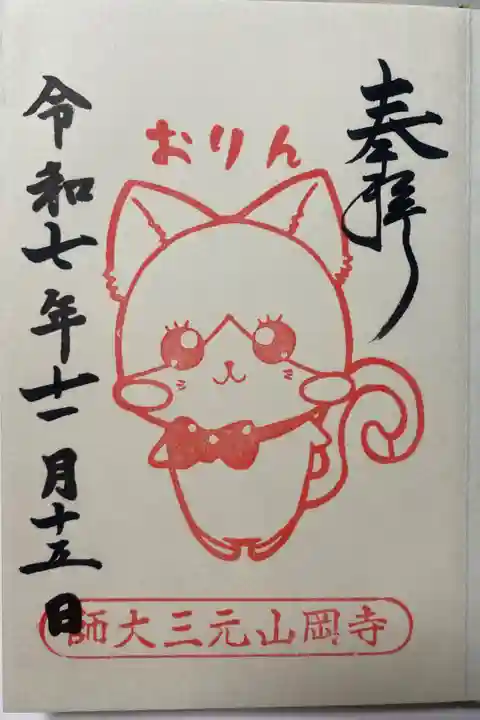 奉拝
おりん
令和七年十一月十五日
寺岡山元三大師